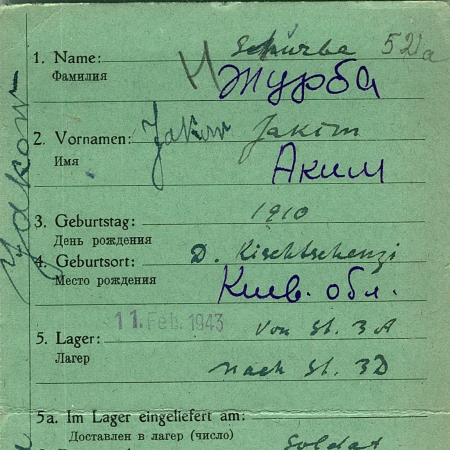 Schurba 52a
1. Name:
Фамилия
Журба
2. Vornamen: Jakim
Имя
Аким
3. Geburtstag: 1910
День рождения
4. Geburtsort: D. Kischtschenzi
Место рождения
Киев. обл.
11. Feb. 1943
5. Lager: Von St. 3A
Лагер
nach St. 3D
5a. Im Lager eingeliefert am:
Доставлен в лагер (число)
Soldat